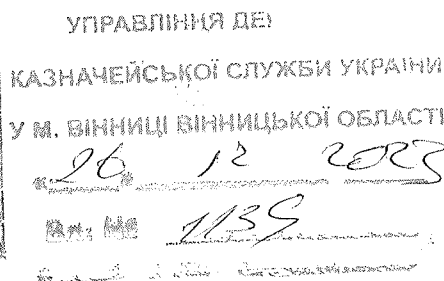 УПРАВЛІННЯ ДЕ
КАЗНАЧЕЙСЬКОЇ СЛУЖБИ УКРАЇНИ
У М. ВІННИЦІ ВІННИЦЬКОЇ ОБЛАСТІ
« 26 » 12 2023
Вх. № 1139